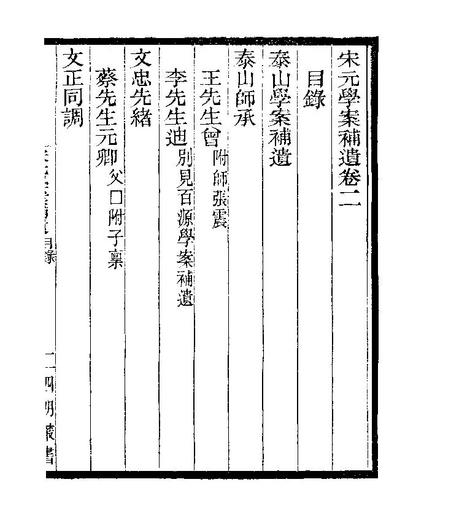 宋元學案補遺卷二
目錄
泰山學案補遺
泰山師承
王先生曾附師張震
李先生迪別見百源學案補遺
文忠先緒
蔡先生元卿父囗附子稟
文正同調
目錄
二四明叢書